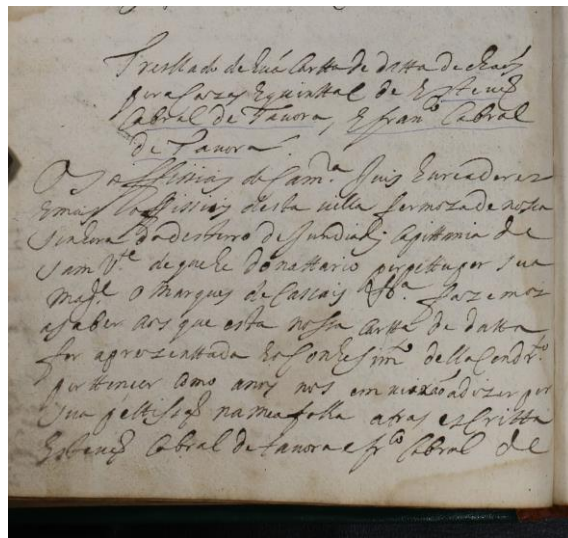 Tresllado de huá Cartta de datta de chaós
pera Cazas Equinttal de Estevẽ
Cabral de Tavora, E fran.co Cabral
de Tavora
Os officiais da Cam.ra Juis Evreadores
Emais officiais desta villa fermoza de nossa
Senhora do desterro de Jundiahj Capittania de
Sam V.te de que he donattario perpettuo por sua
Mag.e o marques de Cascais &.a fazemos
a saber aos que esta nossa Cartta de datta
for aprezenttada Eo Conhesim.to della Com dr.to
perttencer Como a nos nos emviarão a dizer por
sua pettisão na mea folha atras escritta
Estevẽ Cabral de tavora e fr.co Cabral de